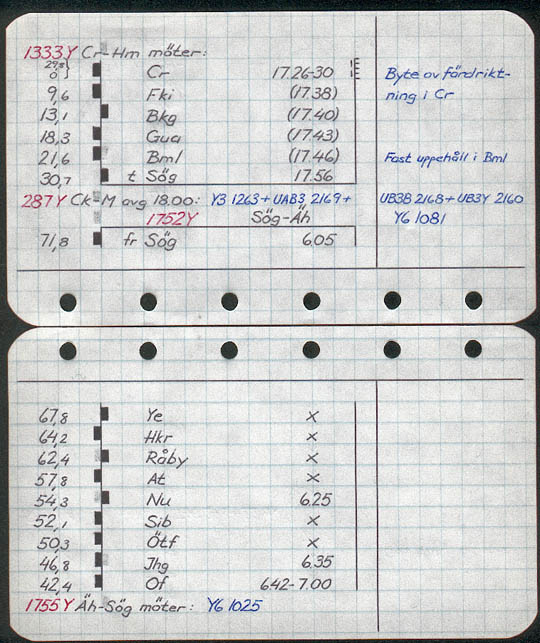 1333Y Cr-Hm möter:
29,8 } 0 Cr 17.26-30 Byte av färdrikt-
9,6 Fki (17.38) ning i Cr
13,1 Bkg (17.40)
18,3 Gua (17.43)
21,6 Bml (17.46) Fast uppehåll i Bml
30,7 t Sög 17.56
287Y Ck-M avg 18.00: Y3 1263 + UAB3 2169 + UB3B 2168 + UB3Y 2160
1752Y Sög-Äh Y6 1081
71,8 fr Sög 6.05
67,8 Ye x
64,2 Hkr x
62,4 Råby x
57,8 At x
54,3 Nu 6.25
52,1 Sib x
50,3 Ötf x
46,8 Jhg 6.35
42,4 Of 642-7.00
1755Y Äh-Sög möter: Y6 1025